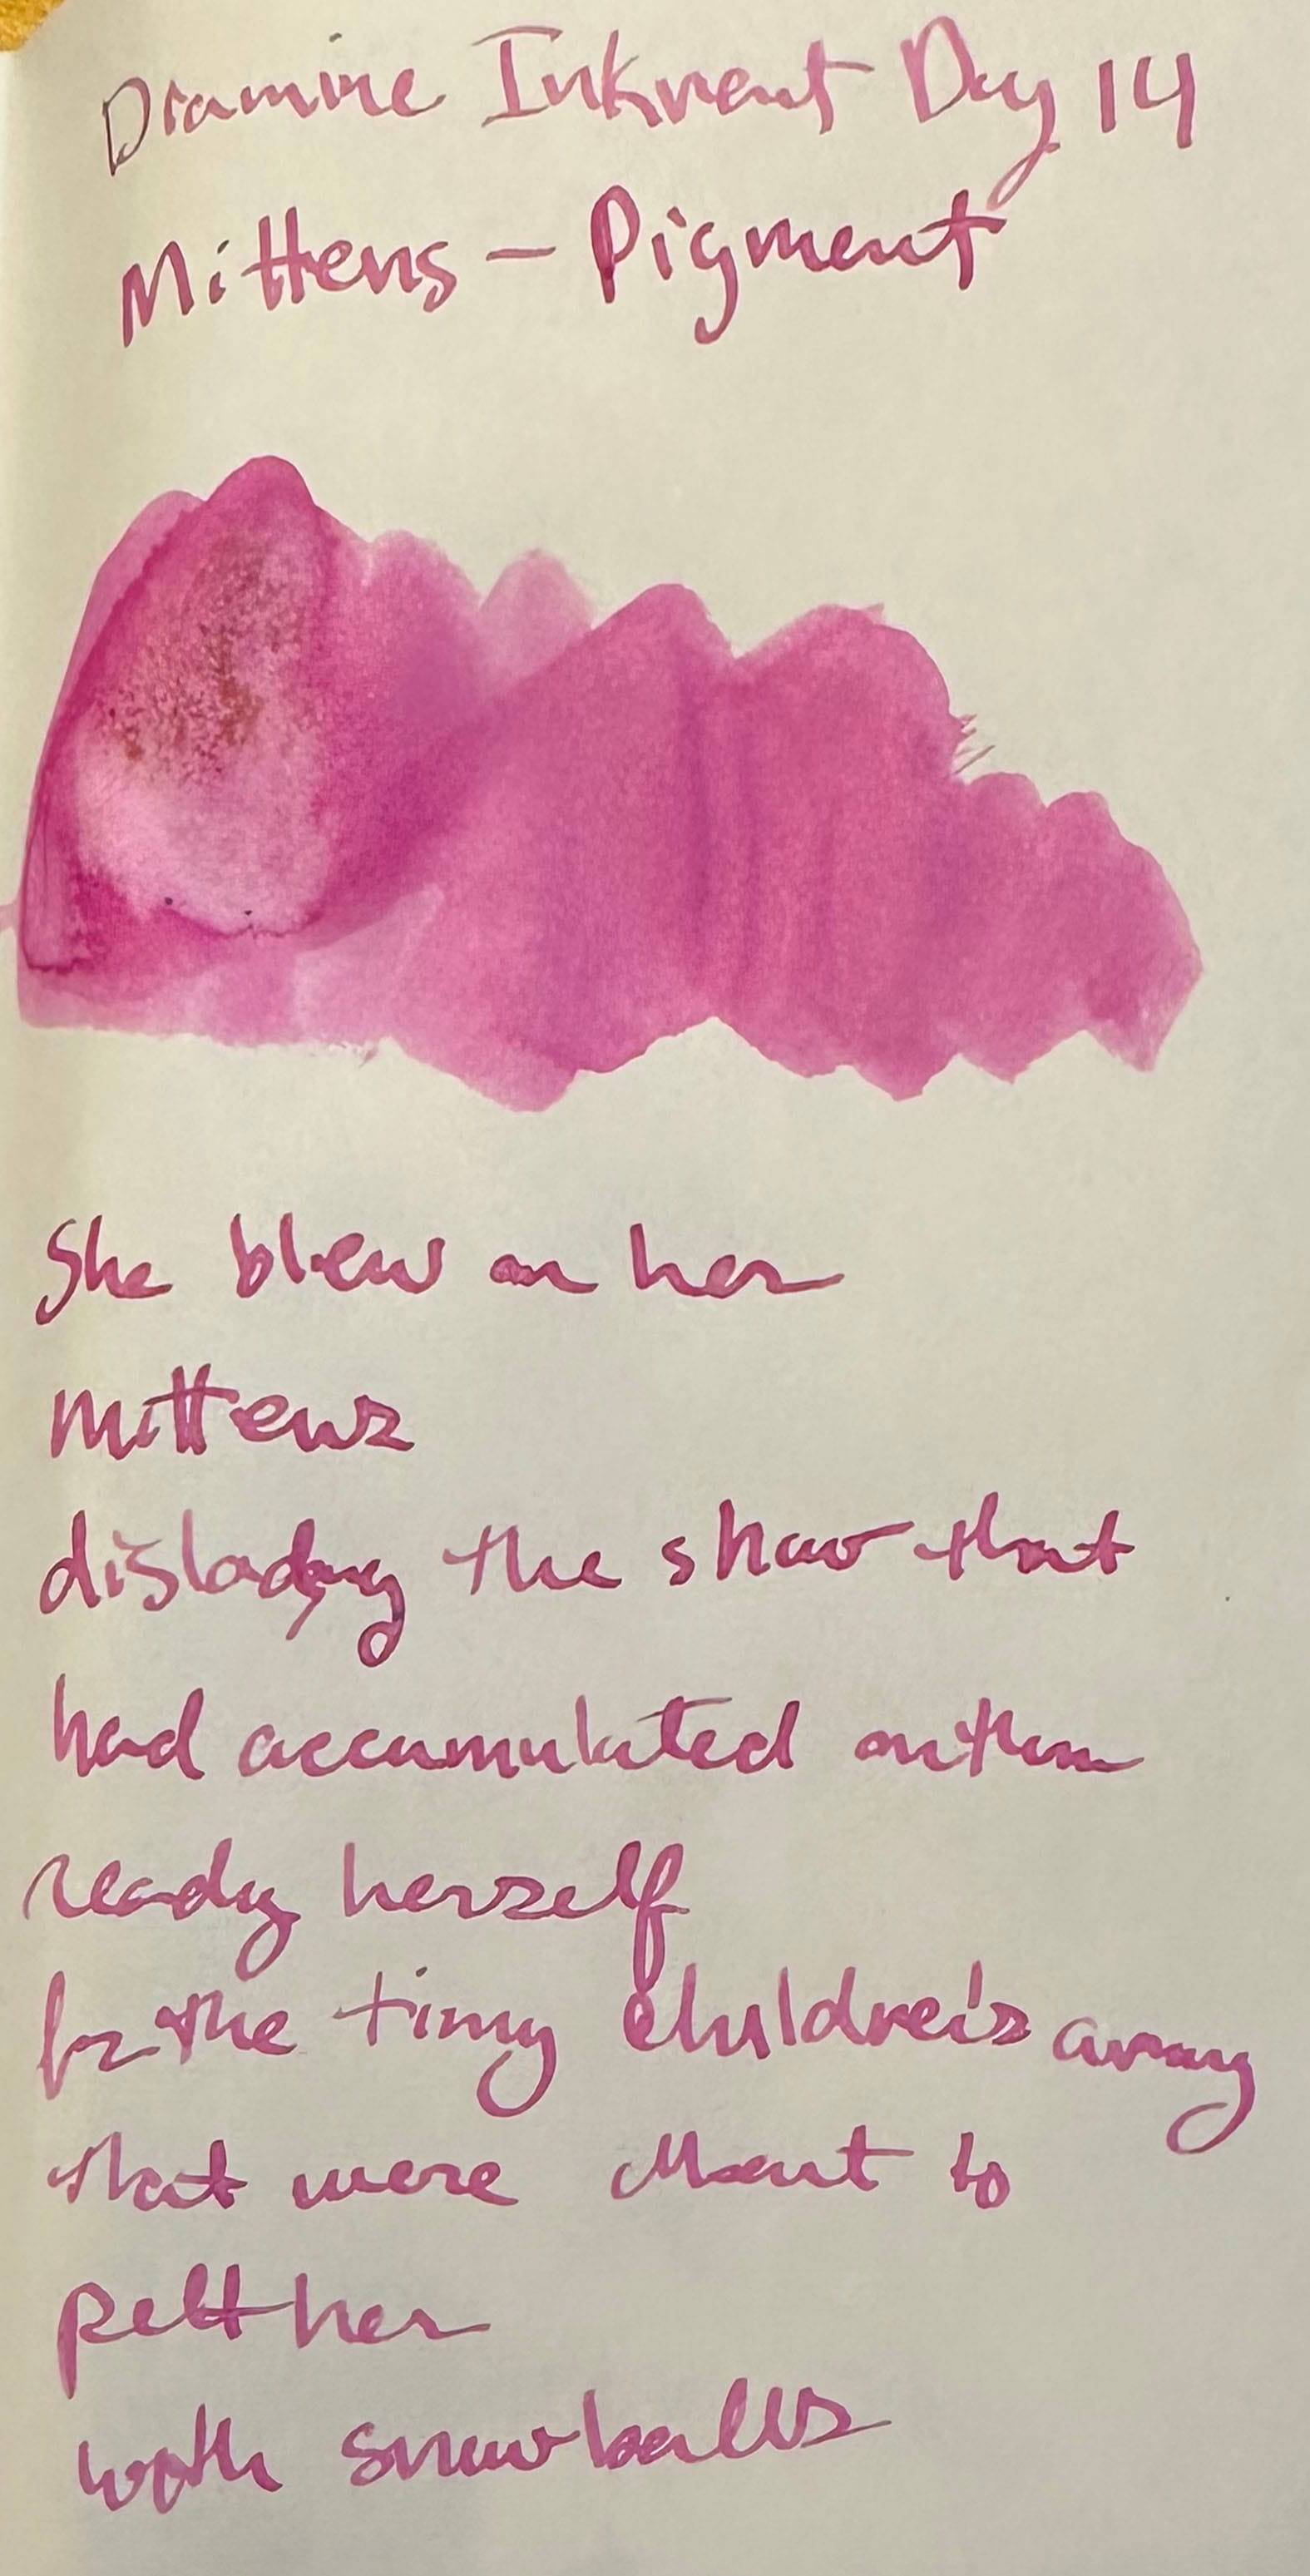 Diamine Inkvent Day 14
Mittens - Pigment
She blew on her
mittens
dislodging the snow that
had accumulated on them
ready herself
for the tiny children's army
that were meant to
pelt her
with snowballs